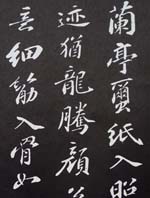 蘭亭繭紙入昭
迹猶龍騰顏公
言細筋入骨如